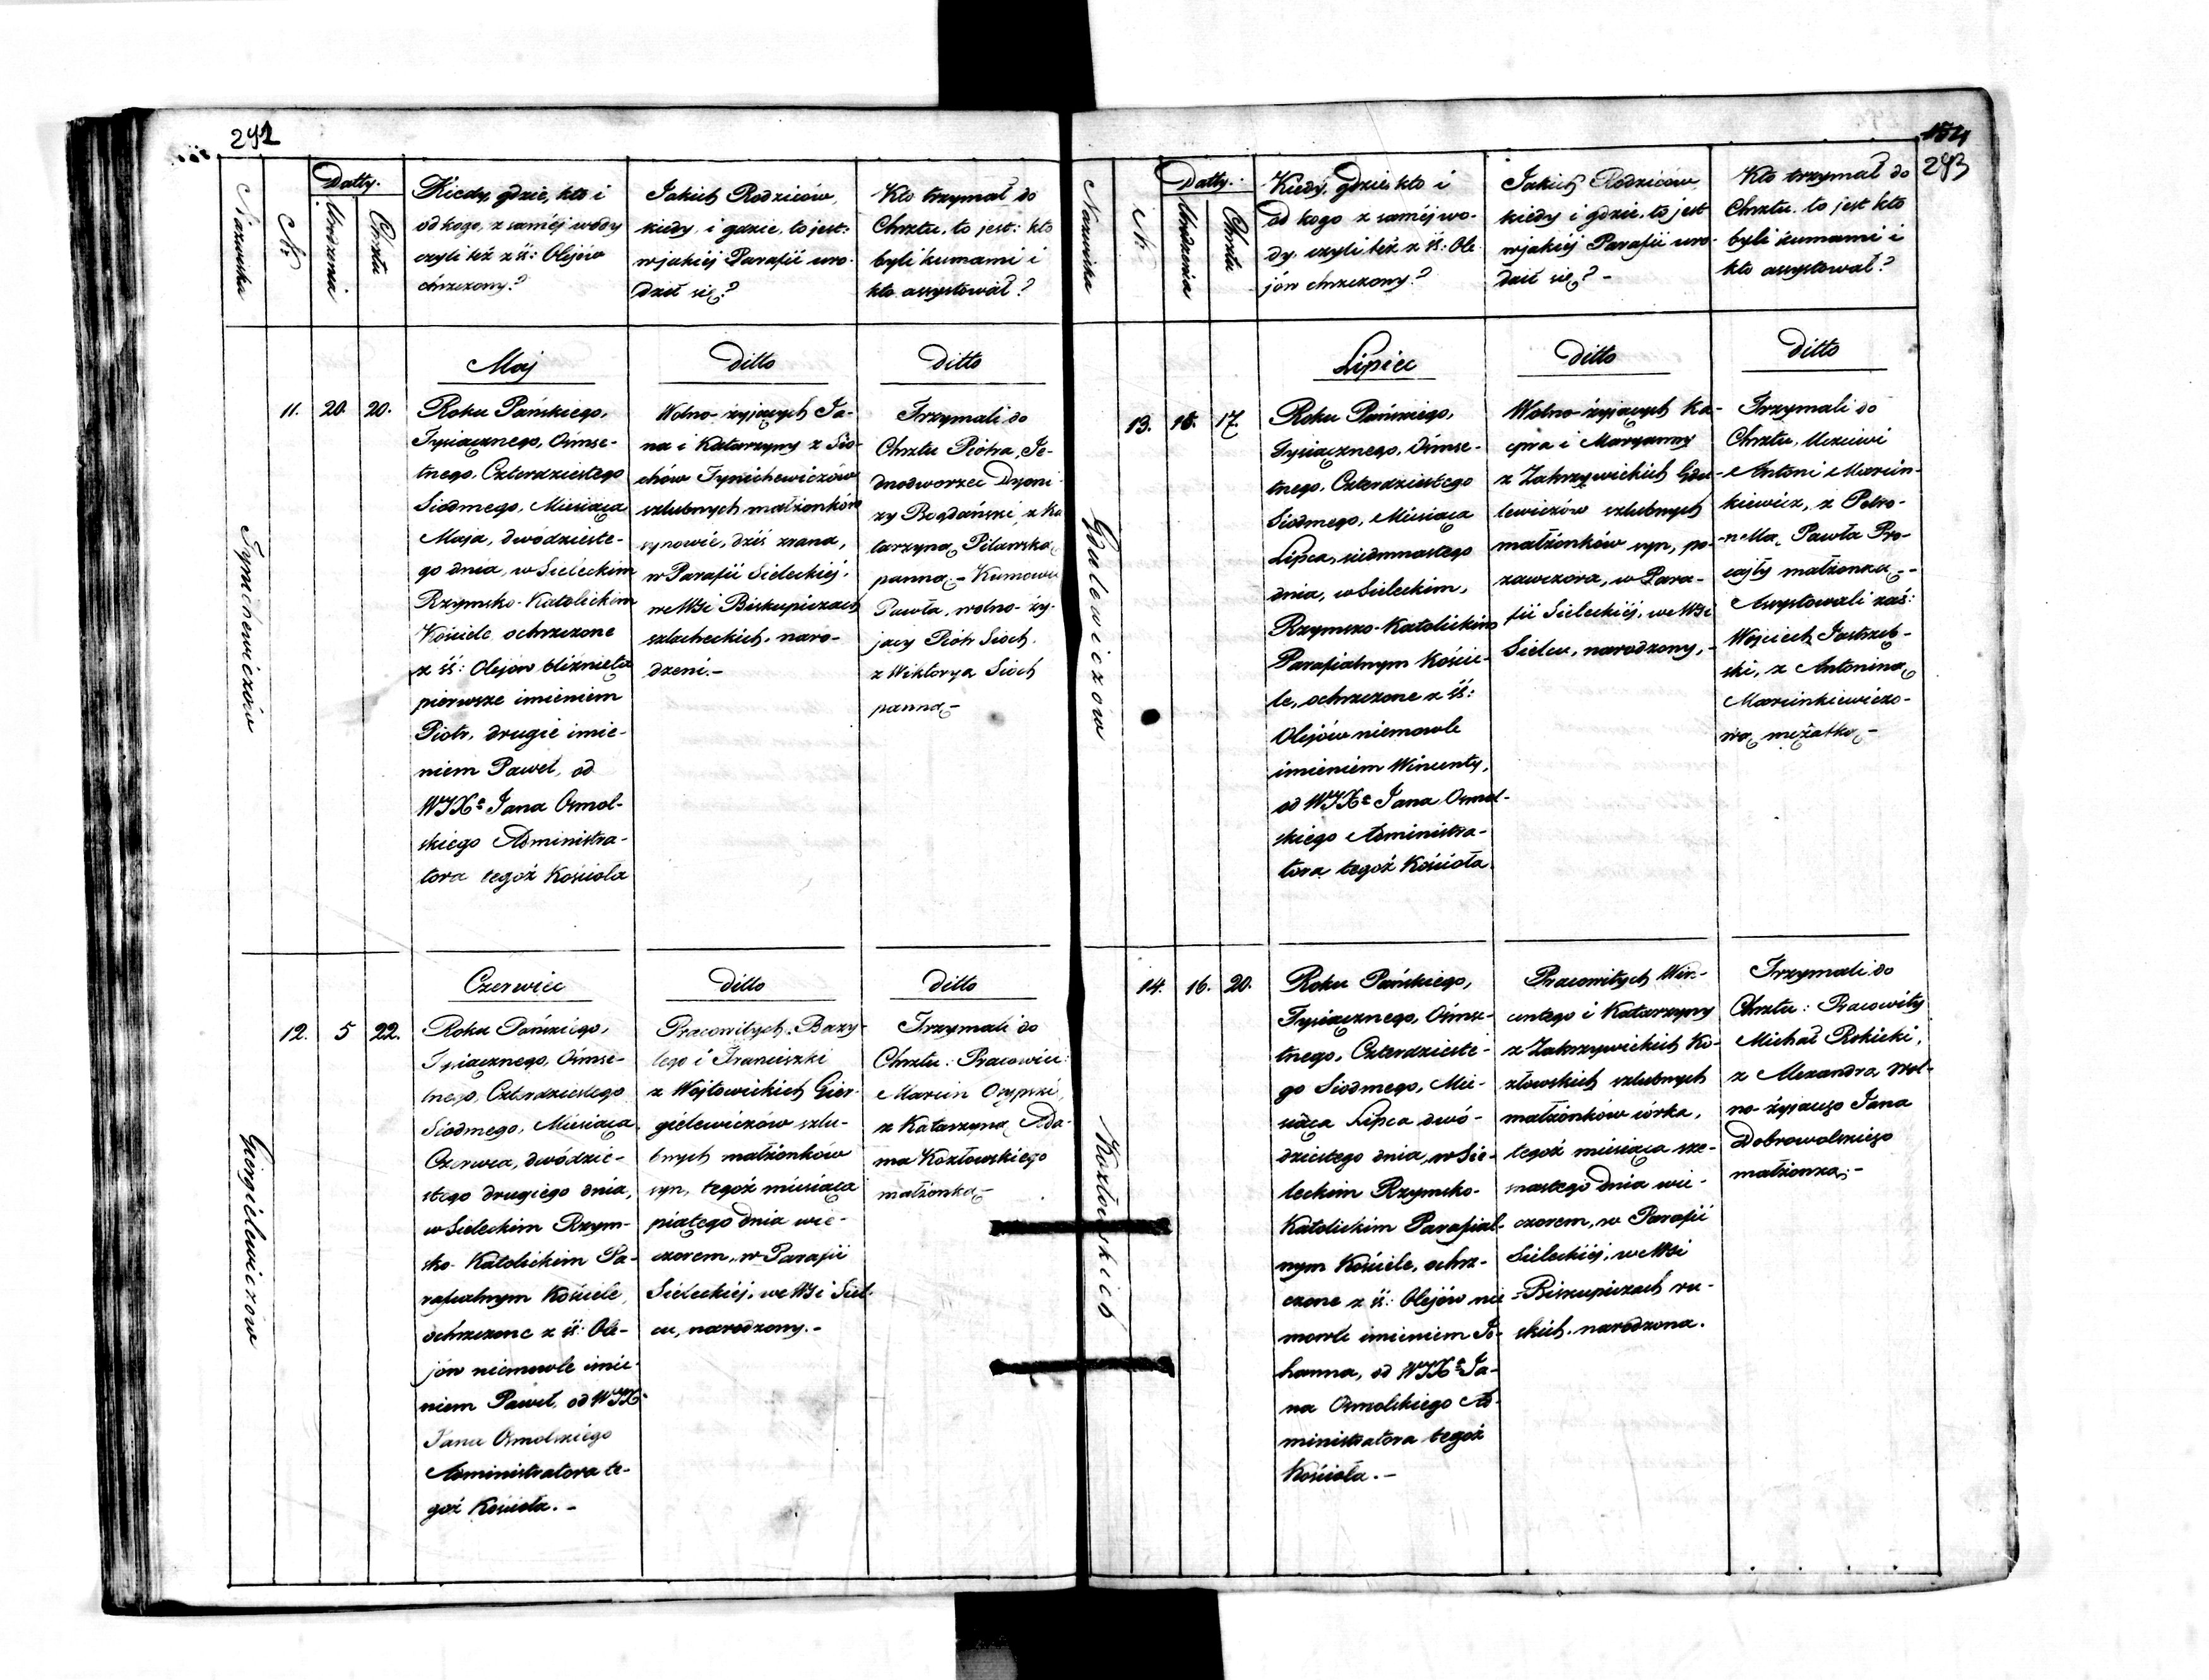 292
Nazwiska
Nr
Datty.
Urodzenia
Chrztu
Kiedy, gdzie, kto i
od kogo, z saméj wody
czyli téż z śś: Olejów
chrzczony?
Jakich Rodziców,
kiedy, i gdzie, to jest:
w jakiéj Parafii uro-
dził się?
Kto trzymał do
Chrztu, to jest: kto
byli kumami i
kto assystował?
Tynichewiczów
11.
20.
20.
Maj
Roku Pańskiego,
Tysiącznego, Ośmse-
tnego, Czterdziestego
Siódmego, Miesiąca
Maja, dwódzieste-
go dnia, w Sieleckim
Rzymsko-Katolickim
Kościele ochrzczone
z śś: Olejów bliźnięta
pierwsze imieniem
Piotr, drugie imie-
niem Paweł, od
WJXa Jana Osmol-
skiego Administra-
tora tegoż Kościoła
ditto
Wolno-żyjących Ja-
na i Katarzyny z Sio-
chów Tynichewiczów
szlubnych małżonków
synowie, dziś zrana,
w Parafii Sieleckiéj,
we Wsi Biskupiczach
szlacheckich, naro-
dzeni.-
ditto
Trzymali do
Chrztu Piotra, Je-
dnodworzec Dyoni-
zy Bogdański, z Ka
tarzyną Pilawską
panną.- Kumowie
Pawła, wolno-ży-
jący Piotr Sioch
z Wiktoryą Sioch
panną-
Giergielewiczów
12.
5
22.
Czerwiec
Roku Pańskiego,
Tysiącznego, Ośmse-
tnego, Czterdziestego
Siódmego, Miesiąca
Czerwca, dwódzie-
stego drugiego dnia,
w Sieleckim Rzym-
sko-Katolickim Pa-
rafialnym Kościele,
ochrzczone z śś: Ole-
jów niemowle imie-
niem Paweł, od WJXa
Jana Osmolskiego
Administratora te-
goż Kościoła.-
ditto
Pracowitych Bazy-
lego i Franciszki
z Wojtowickich Gier-
gielewiczów szlu-
bnych małżonków
syn, tegoż miesiąca
piątego dnia wie-
czorem, w Parafii
Sieleckiéj, we Wsi Siel-
cu, narodzony.-
ditto
Trzymali do
Chrztu: Pracowici:
Marcin Osypski,
z Katarzyną Ada-
ma Kozłowskiego
małżonką-
154
293
Nazwiska
Nr
Datty.
Urodzenia
Chrztu
Kiedy, gdzie, kto i
od kogo z saméj wo-
dy, czyli téż z śś: Ole-
jów chrzczony?
Jakich Rodziców,
kiedy i gdzie, to jest
w jakiéj Parafii uro-
dził się?-
Kto trzymał do
Chrztu, to jest kto
byli kumami i
kto assystował?
Gdulewiczów
13.
15.
17.
Lipiec
Roku Pańskiego,
Tysiącznego, Ośmse-
tnego, Czterdziestego
Siódmego, Miesiąca
Lipca, siedmnastego
dnia, w Sieleckim,
Rzymsko-Katolickim
Parafialnym Koście-
le, ochrzczone z śś:
Olejów niemowle
imieniem Wincenty,
od WJXa Jana Osmol-
skiego Administra-
tora tegoż Kościoła.
ditto
Wolno-żyjących Ka-
cpra i Maryanny
z Zakrzywickich Gdu-
lewiczów szlubnych
małżonków syn, po-
zawczora, w Para-
fii Sieleckiéj, we Wsi
Sielcu, narodzony,-
ditto
Trzymali do
Chrztu, Uczciwi
Antoni Marcin-
kiewicz, z Petro-
nellą Pawła Pro-
cajły małżonką.-
Assystowali zaś:
Wojciech Jastrzęb-
ski, z Antoniną
Marcinkiewiczo-
wą mężatką-
Kozłowskich
14.
16.
20.
Roku Pańskiego,
Tysiącznego, Ośmse-
tnego, Czterdzieste-
go Siódmego, Mie-
siąca Lipca dwó-
dziestego dnia, w Sie-
leckim Rzymsko-
Katolickim Parafial-
nym Kościele, ochrz-
czone z śś: Olejów nie
mowle imieniem Jo-
hanna, od WJXa Ja-
na Osmolskiego Ad-
ministratora tegoż
Kościoła.-
Pracowitych Win-
centego i Katarzyny
z Zakrzywickich Ko-
złowskich szlubnych
małżonków córka,
tegoż miesiąca sze-
snastego dnia wie-
czorem, w Parafii
Sieleckiéj, we Wsi
Biskupiczach ru-
skich, narodzona.
Trzymali do
Chrztu: Pracowity
Michał Rokicki,
z Alexandrą wol-
no-żyjącego Jana
Dobrowolskiego
małżonką.-